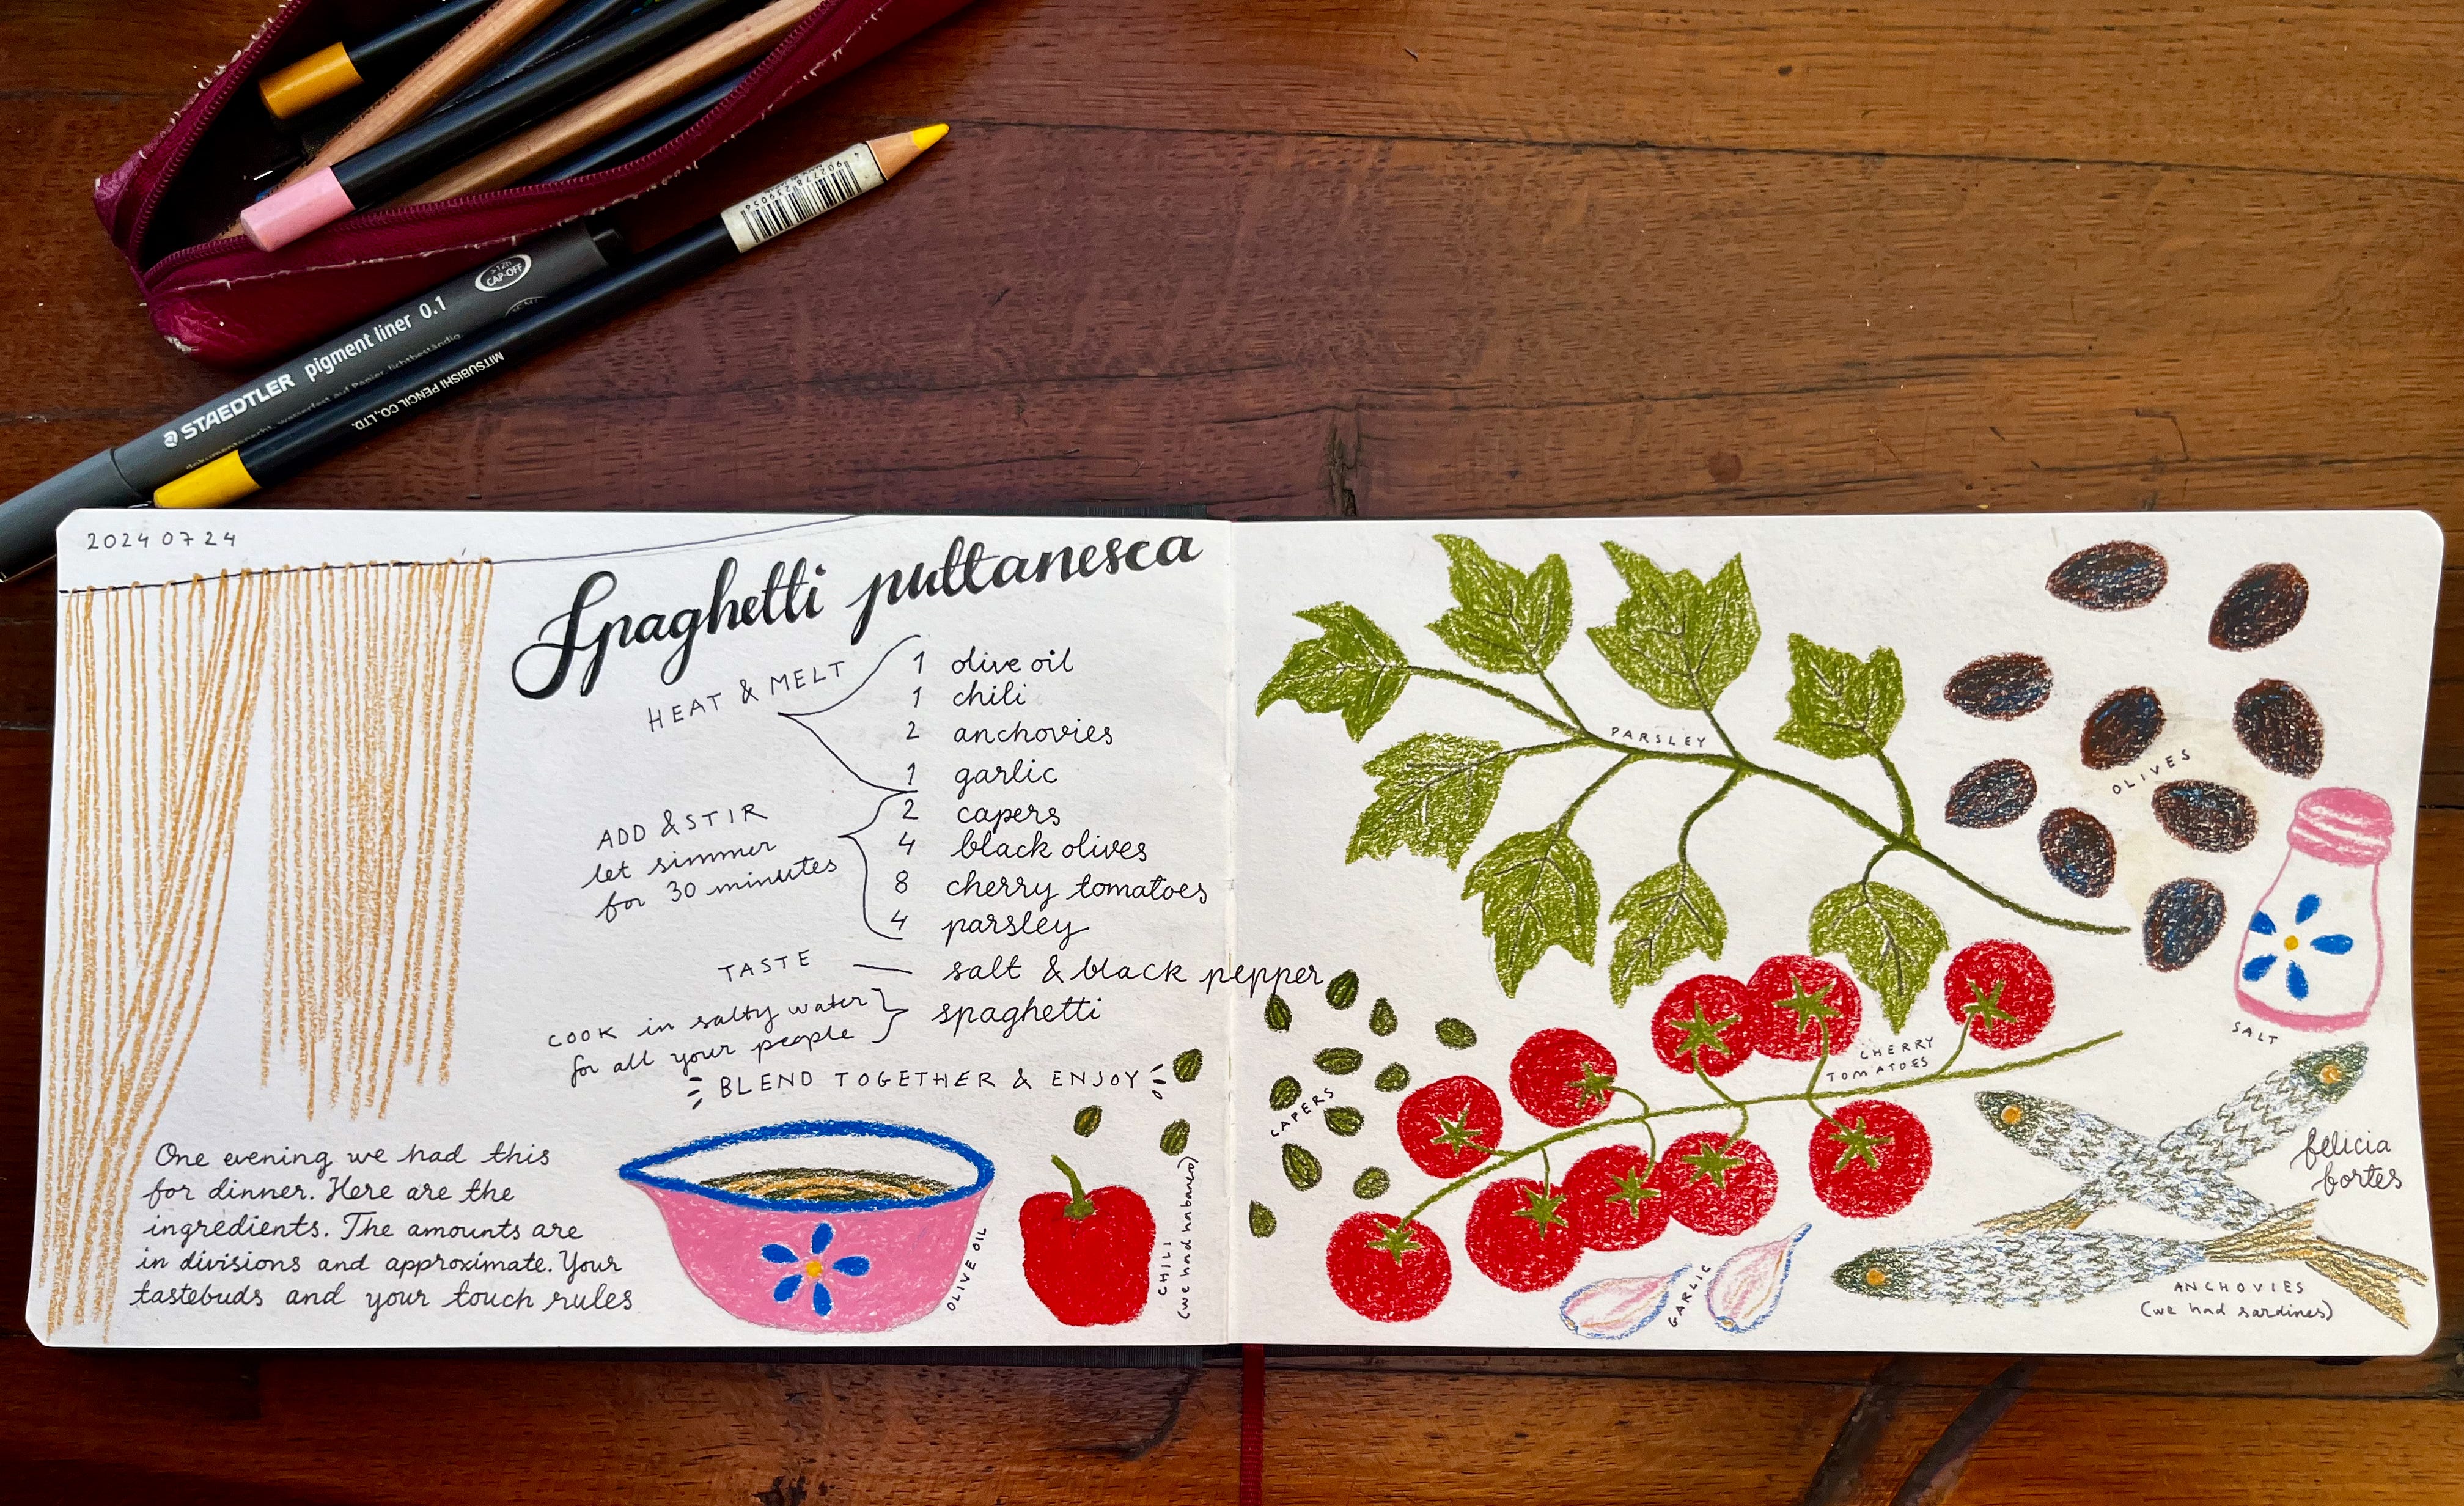 >12h
CAP-OFF
STAEDTLER pigment liner 0.1
MITSUBISHI PENCIL CO., LTD.
4 902778 239056
2024 07 24
Spaghetti puttanesca
HEAT & MELT
1 olive oil
1 chili
2 anchovies
1 garlic
ADD & STIR
let simmer
for 30 minutes
2 capers
4 black olives
8 cherry tomatoes
4 parsley
TASTE — salt & black pepper
COOK in salty water
for all your people
spaghetti
BLEND TOGETHER & ENJOY
One evening we had this
for dinner. Here are the
ingredients. The amounts are
in divisions and approximate. Your
tastebuds and your touch rules
OLIVE OIL
CHILI
(we had habanero)
PARSLEY
OLIVES
SALT
CAPERS
CHERRY
TOMATOES
GARLIC
felicia
fortes
ANCHOVIES
(we had sardines)